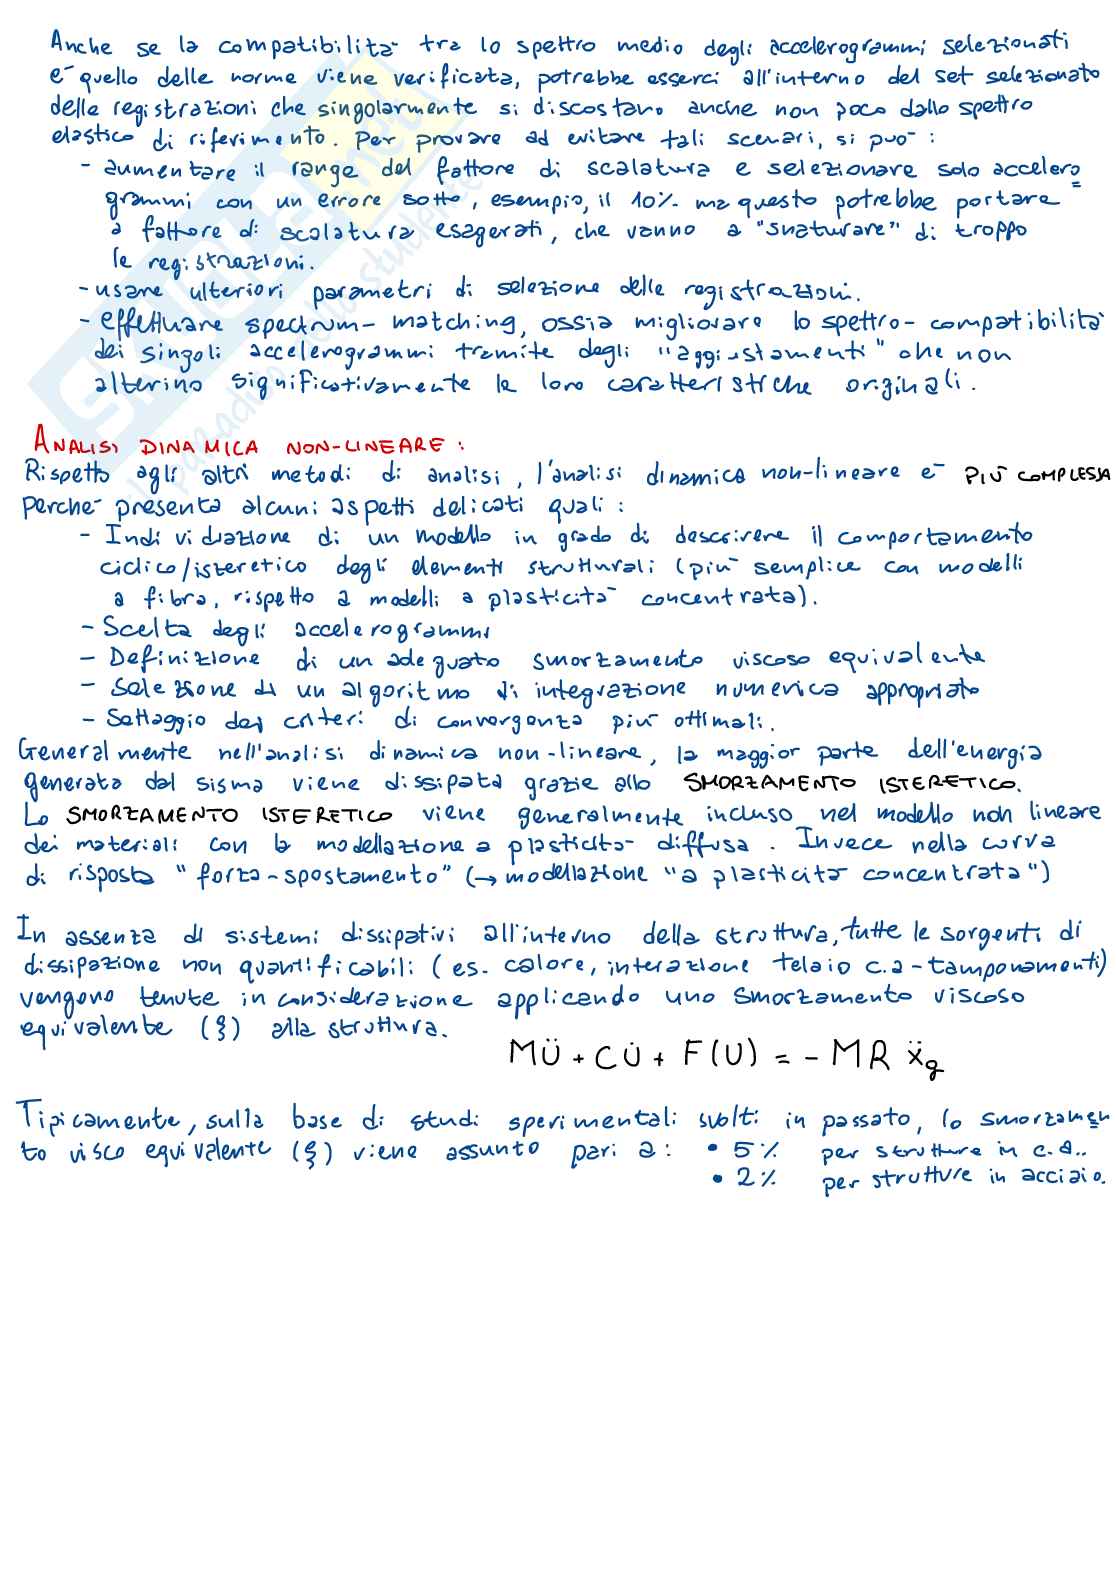 Anche se la compatibilità tra lo spettro medio degli accelerogrammi selezionati
e quello delle norme viene verificata, potrebbe esserci all'interno del set selezionato
delle registrazioni che singolarmente si discostano anche non poco dallo spettro
elastico di riferimento. Per provare ad evitare tali scenari, si può:
- aumentare il range del fattore di scalatura e selezionare solo accelero
grammi con un errore sotto, esempio, il 10% ma questo potrebbe portare
a fattore di scalatura esagerati, che vanno a "snaturare" di troppo
le registrazioni.
- usare ulteriori parametri di selezione delle registrazioni.
- effettuare spectrum-matching, ossia migliorare lo spettro-compatibilità
dei singoli accelerogrammi tramite degli "aggiustamenti" che non
alterino significativamente le loro caratteristiche originali.
ANALISI DINAMICA NON-LINEARE:
Rispetto agli altri metodi di analisi, l'analisi dinamica non-lineare è PIÙ COMPLESSA
perché presenta alcuni aspetti delicati quali:
- Individuazione di un modello in grado di descrivere il comportamento
ciclico/isteretico degli elementi strutturali (più semplice con modelli
a fibra, rispetto a modelli a plasticità concentrata).
- Scelta degli accelerogrammi
- Definizione di un adeguato smorzamento viscoso equivalente
- Selezione di un algoritmo di integrazione numerica appropriato
- Settaggio dei criteri di convergenza più ottimali.
Generalmente nell'analisi dinamica non-lineare, la maggior parte dell'energia
generata dal sisma viene dissipata grazie allo SMORZAMENTO ISTERETICO.
Lo SMORZAMENTO ISTERETICO viene generalmente incluso nel modello non lineare
dei materiali con la modellazione a plasticità diffusa. Invece nella curva
di risposta "forza-spostamento" (→ modellazione "a plasticità concentrata")
In assenza di sistemi dissipativi all'interno della struttura, tutte le sorgenti di
dissipazione non quantificabili (es. calore, interazione telaio c.a-tamponamenti)
vengono tenute in considerazione applicando uno smorzamento viscoso
equivalente (ξ) alla struttura.
MÜ + CU̇ + F(U) = - MR ẍg
Tipicamente, sulla base di studi sperimentali svolti in passato, lo smorzamen
to visco equivalente (ξ) viene assunto pari a: • 5% per strutture in c.a..
• 2% per strutture in acciaio.